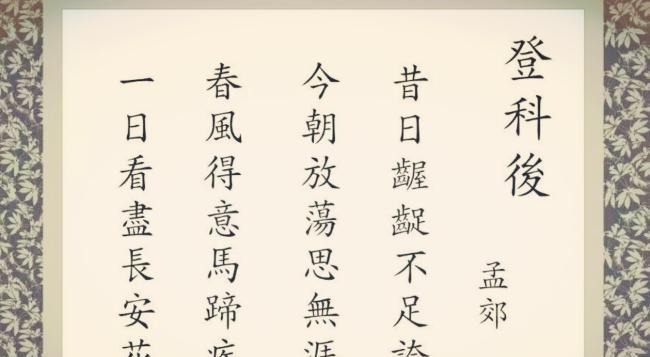 登科後
孟郊
昔日齷齪不足誇
今朝放蕩思無涯
春風得意馬蹄疾
一日看盡長安花